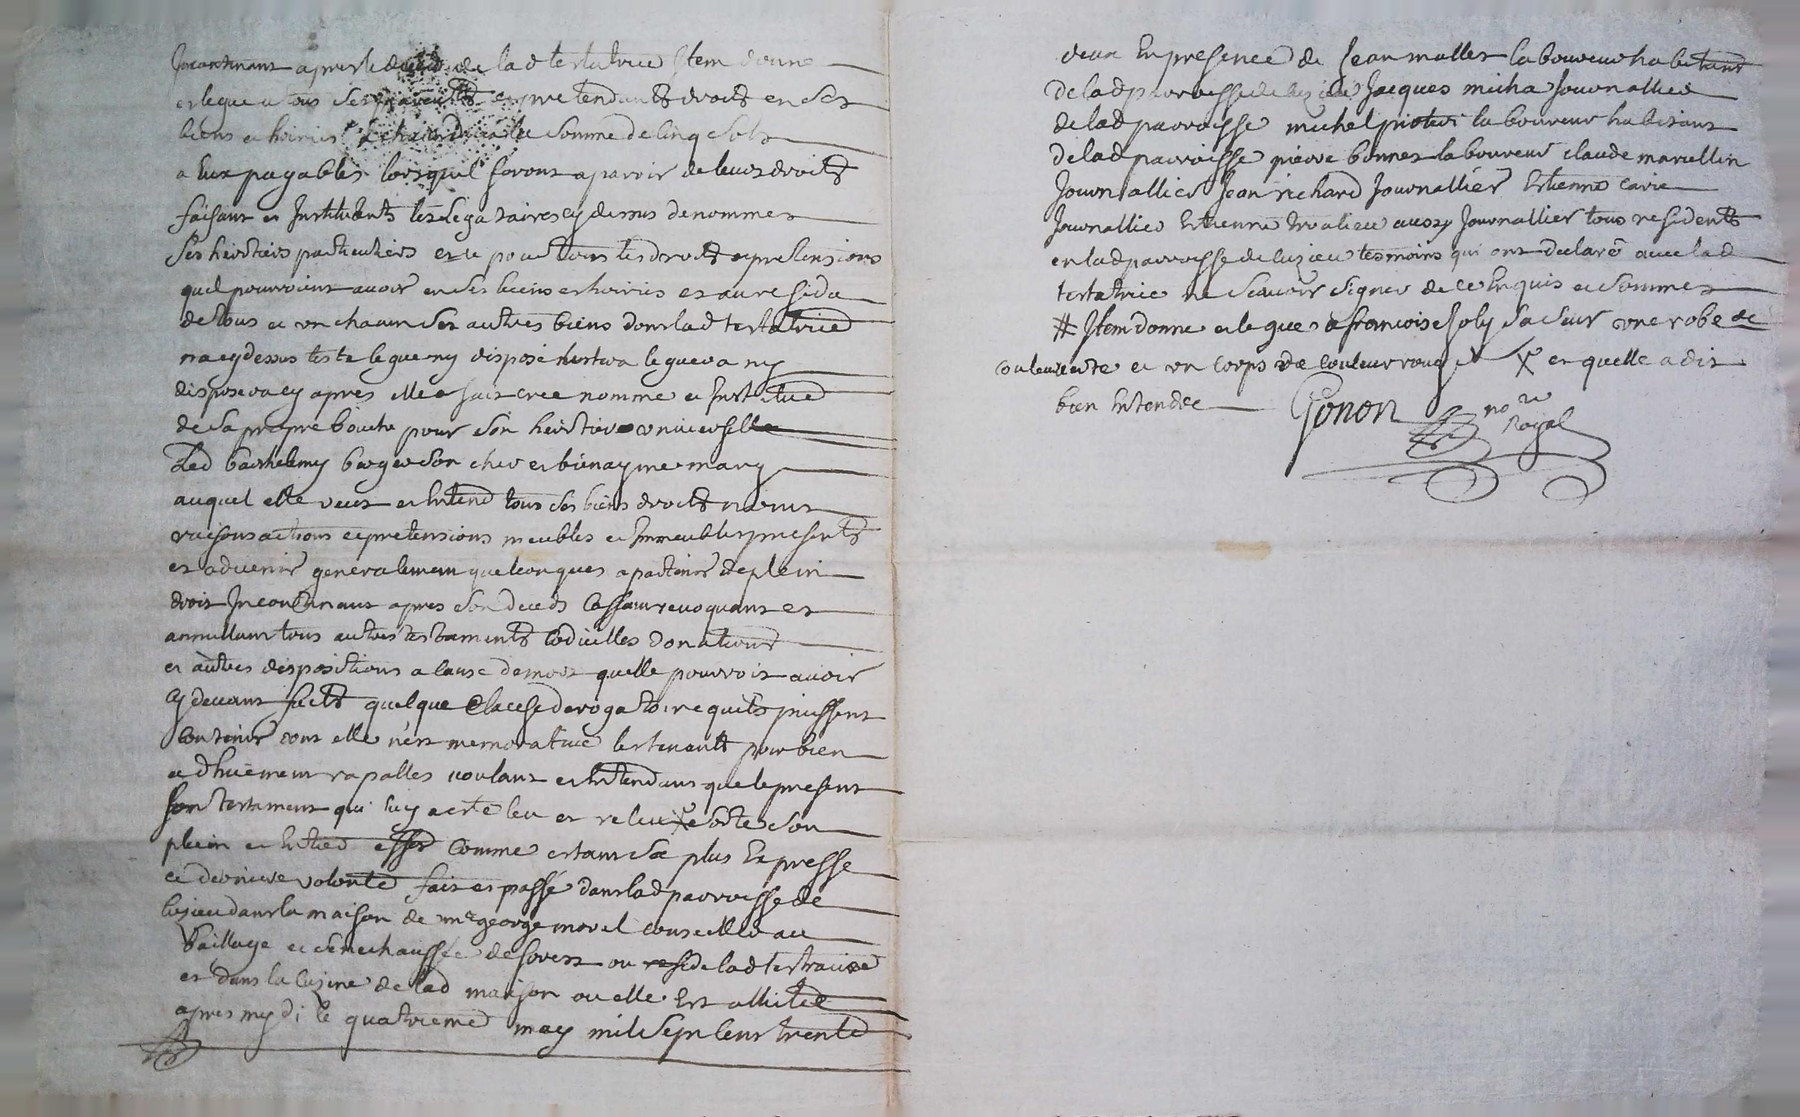 Incontinant apres le deceds de lad testatrice Item donne
et legue a tous ses parents et pretendants droits en ses
biens et hoiries a chacun deux la somme de cinq sols
a Eux payables lorsquil feront aparoir de leurs droits
faisant et Instituants les legataires cy dessus denommes
ses heritiers particuliers et ce pour tous les droits et pretensions
quil pourroient avoir en ses biens et hoiries et au residu
de tous et un chacun ses autres biens dont lad testatrice
na cy dessus teste legue ny disposé testera leguera ny
disposera cy apres elle a fait cree nomme et Institue
de sa propre bouche pour son heritier universelle
Led barthelemy berger son cher et bienayme mary
auquel elle veut et Entend tous ses biens droits noms
raisons actions et pretensions meubles et Immeubles presents
et advenir generalement quelconques apartenir de plein
droit Incontinant apres son deceds Cassant revoquant et
annullant tous autres testaments Codicilles donations
et autres dispositions a cause de mort quelle pourroit avoir
cy devant faits quelque clause derogatoire quils puissent
contenir dont elle nest memorative les tenants pour bien
et dhuement rapalles voulant et Entendant que le present
son testament qui luy a esté leu et releu sorte son
plein et Entier effet Comme estant sa plus Expresse
et derniere volonté fait et passé dans lad parroisse de
luzieu dans la maison de mr george morel conseiller au
Baillage et senechaussée de forest ou reside lad testatrice
et dans la cuzine de lad maison ou elle Est allitée
apres mydi le quatrieme may mil sept cent trente
deux En presence de Jean mallet laboureur habitant
de lad parroisse de luzieu Jacques micha Journallier
de lad parroisse michel laboureur habitant
de lad parroisse pierre bonnet laboureur claude marcellin
Journallier Jean richard Journallier Estienne
Journallier Estienne aussy Journallier tous residents
en lad parroisse de luzieu tesmoins qui ont declaré avec lad
testatrice ne scavoir signer de ce Enquis et sommes
# Item donne et legue a francoise Joly sa seur une robe de
couleur verte et un corps de couleur rouge X et quelle a dit
bien Entendre Gonon nore
Royal